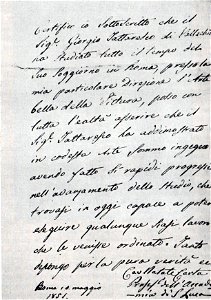 Certifico io Sottoscritto che il
Sig.r Giorgio Pattarsko di
ha studiato tutto il tempo del
suo Soggiorno in Roma, presso la
mia particolare direzione l'Arte
bella della Pittura, posso con
tutta lealtà asserire che il
Sig.r ha addimostrato
in codesta Arte Sommo ingegno
avendo fatto sì rapidi progressi
nell'avanzamento dello studio, che
trovasi in oggi capace a poter
eseguire qualunque siasi lavoro
che le venisse ordinato. Tanto
depongo per la pura verità
Prof.e dell'Accade
mia di S. Luca
Roma 10 maggio
1851.